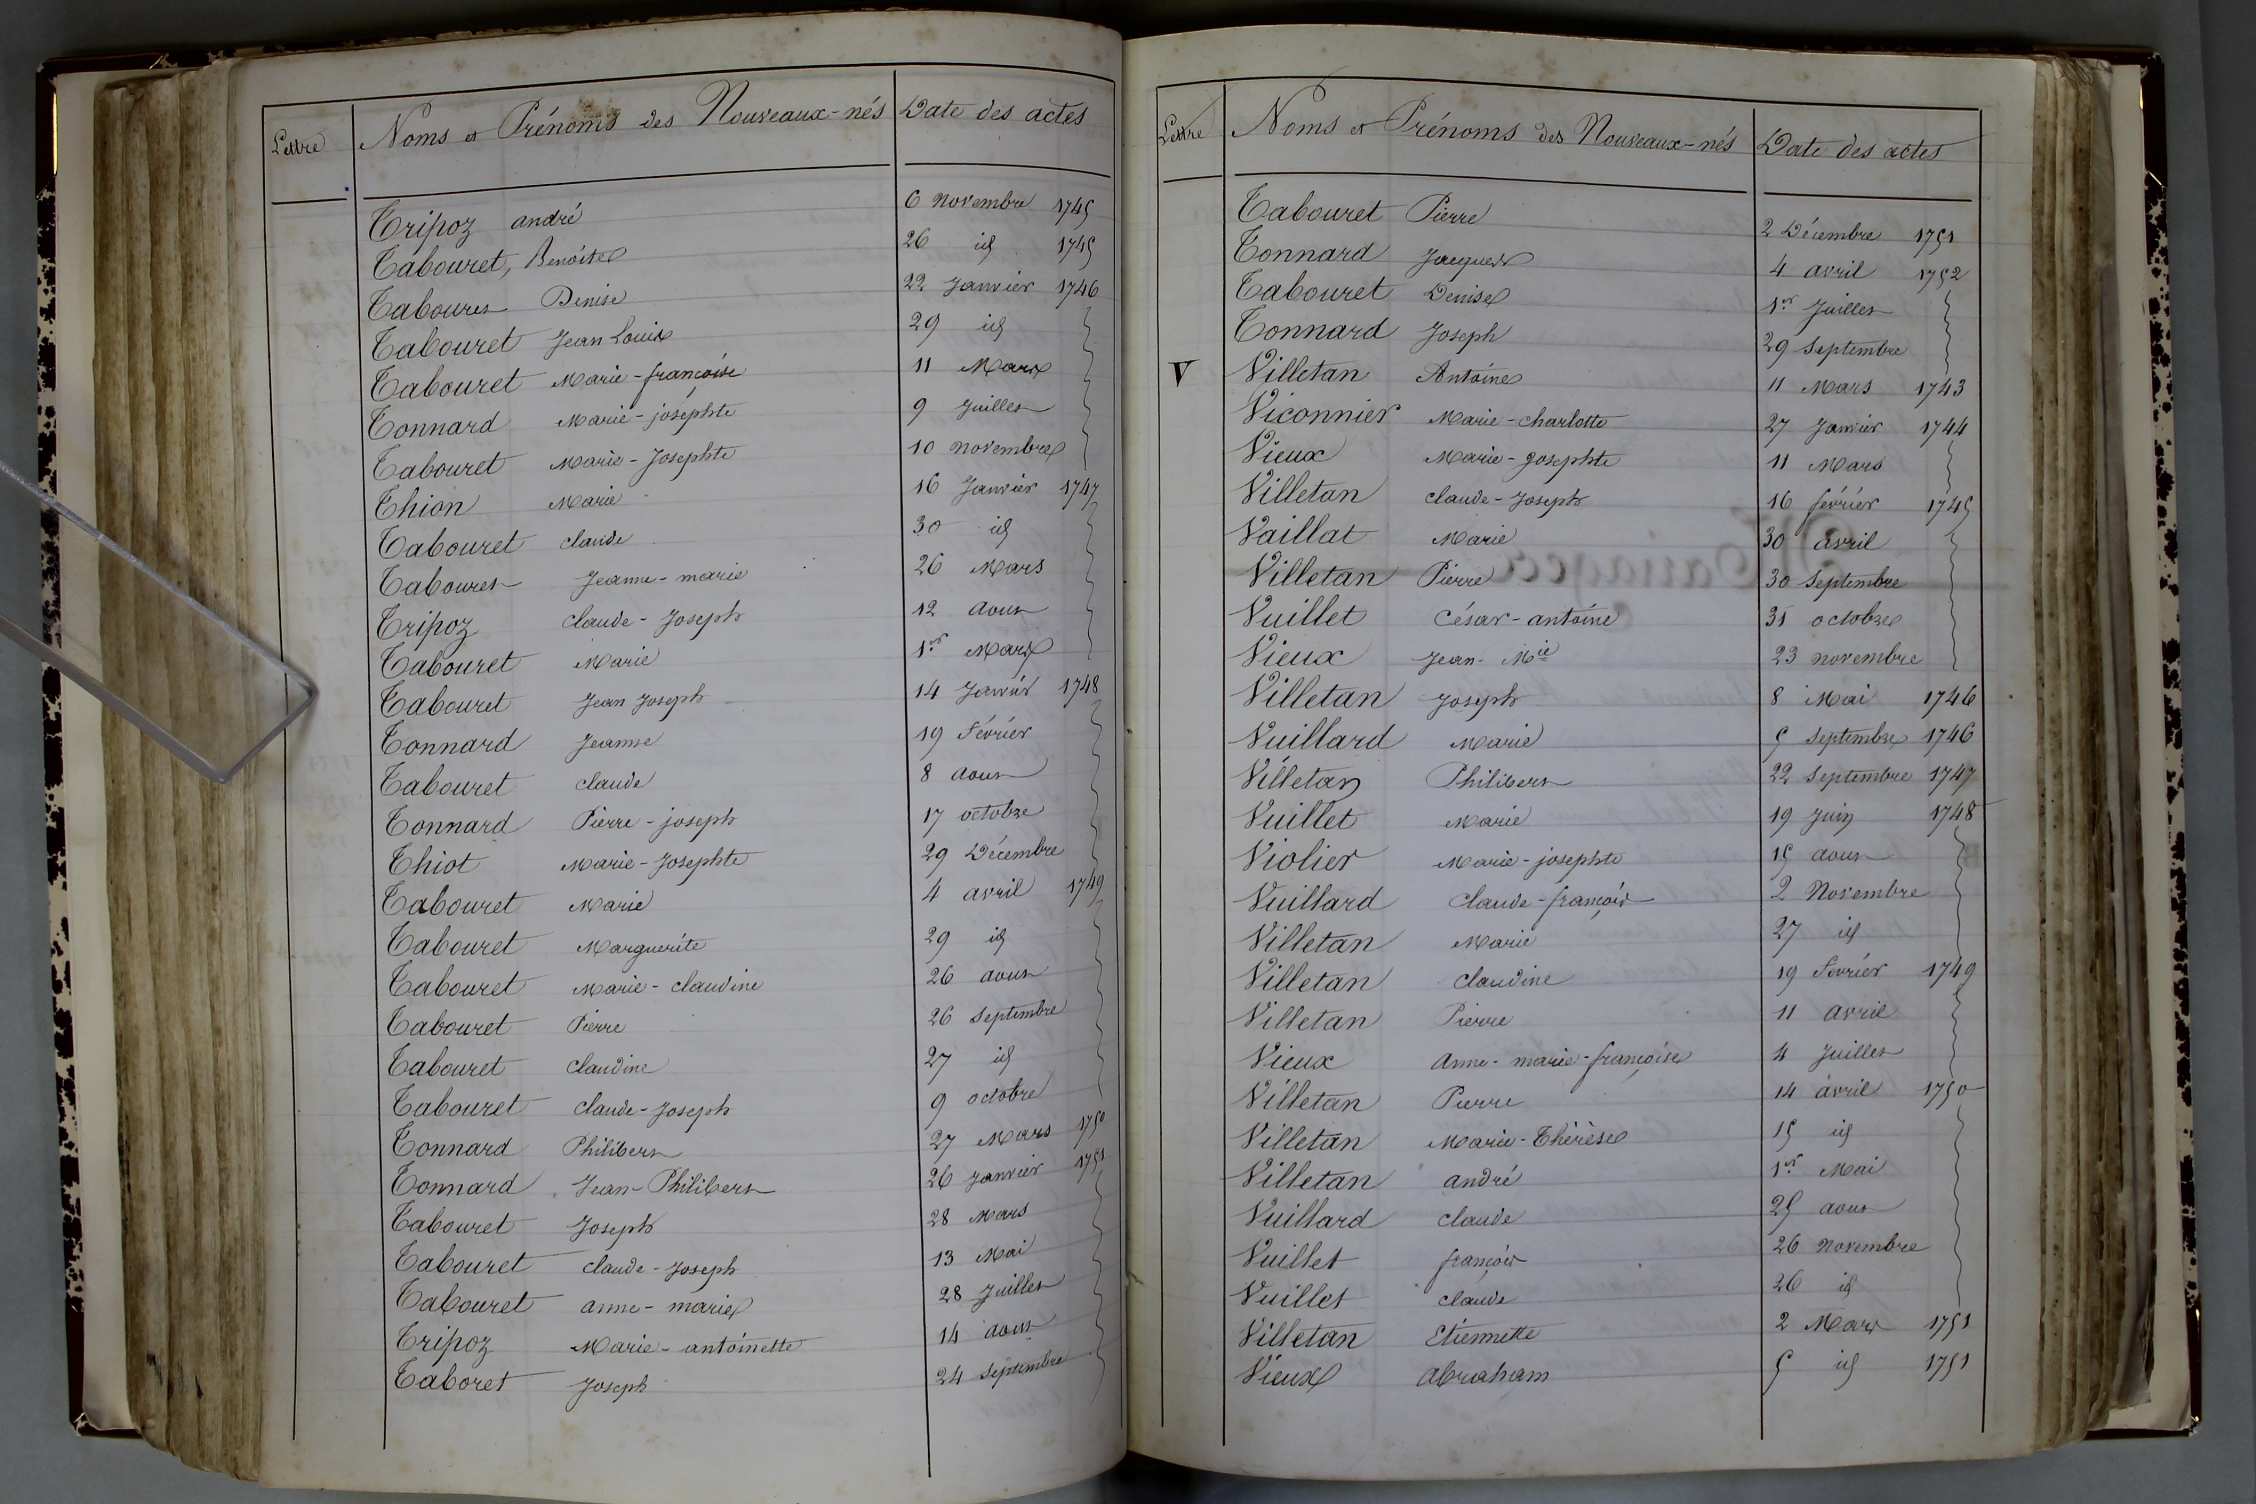 Lettre Noms et Prénoms des Nouveaux-nés Date des actes
Tripoz andré 6 novembre 1745
Tabouret, Benoite 26 id 1745
Tabouret Denise 22 Janvier 1746
Tabouret Jean Louis 29 id
Tabouret Marie-françoise 11 Mars
Tonnard Marie-joséphte 9 Juillet
Tabouret Marie-Josephte 10 novembre
Thion Marie 16 Janvier 1747
Tabouret claude 30 id
Tabouret Jeanne-marie 26 Mars
Tripoz claude-Joseph 12 aout
Tabouret Marie 1er Mars
Tabouret Jean Joseph 14 Janvier 1748
Tonnard Jeanne 19 Février
Tabouret claude 8 aout
Tonnard Pierre-joseph 17 octobre
Thiot Marie-Josephte 29 Décembre
Tabouret Marie 4 avril 1749
Tabouret Marguerite 29 id
Tabouret Marie-claudine 26 aout
Tabouret Pierre 26 Septembre
Tabouret claudine 27 id
Tabouret claude-Joseph 9 octobre
Tonnard Philibert 27 Mars 1750
Tonnard Jean-Philibert 26 Janvier 1751
Tabouret Joseph 28 Mars
Tabouret claude-Joseph 13 Mai
Tabouret anne-marie 28 Juillet
Tripoz Marie-antoinette 14 aout
Taboret Joseph 24 Septembre
Lettre Noms et Prénoms des Nouveaux-nés Date des actes
Tabouret Pierre 2 Décembre 1751
Tonnard Jacques 4 avril 1752
Tabouret Denise 1er Juillet
Tonnard Joseph 29 Septembre
V Villetan Antoine 11 Mars 1743
Viconnier Marie-charlotte 27 Janvier 1744
Vieux Marie-Josephte 11 Mars
Villetan claude-Joseph 16 février 1745
Vaillat Marie 30 avril
Villetan Pierre 30 Septembre
Vuillet César-antoine 31 octobre
Vieux Jean-Mie 23 novembre
Villetan Joseph 8 Mai 1746
Vuillard Marie 5 Septembre 1746
Villetan Philibert 22 Septembre 1747
Vuillet Marie 19 Juin 1748
Violier Marie-josephte 15 aout
Vuillard Claude-françois 2 Novembre
Villetan Marie 27 id
Villetan claudine 19 Février 1749
Villetan Pierre 11 avril
Vieux anne-marie-françoise 4 Juillet
Villetan Pierre 14 avril 1750
Villetan Marie-Thérèse 15 id
Villetan andré 1er Mai
Vuillard claude 25 aout
Vuillet françois 26 novembre
Vuillet claude 26 id
Villetan Etiennette 2 Mars 1751
Vieux abraham 5 id 1751